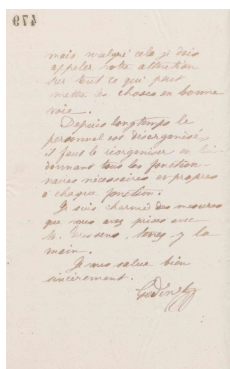 479
mais malgré cela je dois
appeler votre attention
sur tout ce qui peut
mettre les choses en bonne
voie.
Depuis longtemps le
personnel est désorganisé,
il faut le réorganiser en lui
donnant tous les fonction-
naires nécessaires et propres
à chaque fonction.
Je suis charmé des mesures
que vous avez prises avec
M. tenez y la
main.
Je vous salue bien
sincèrement.
Godin